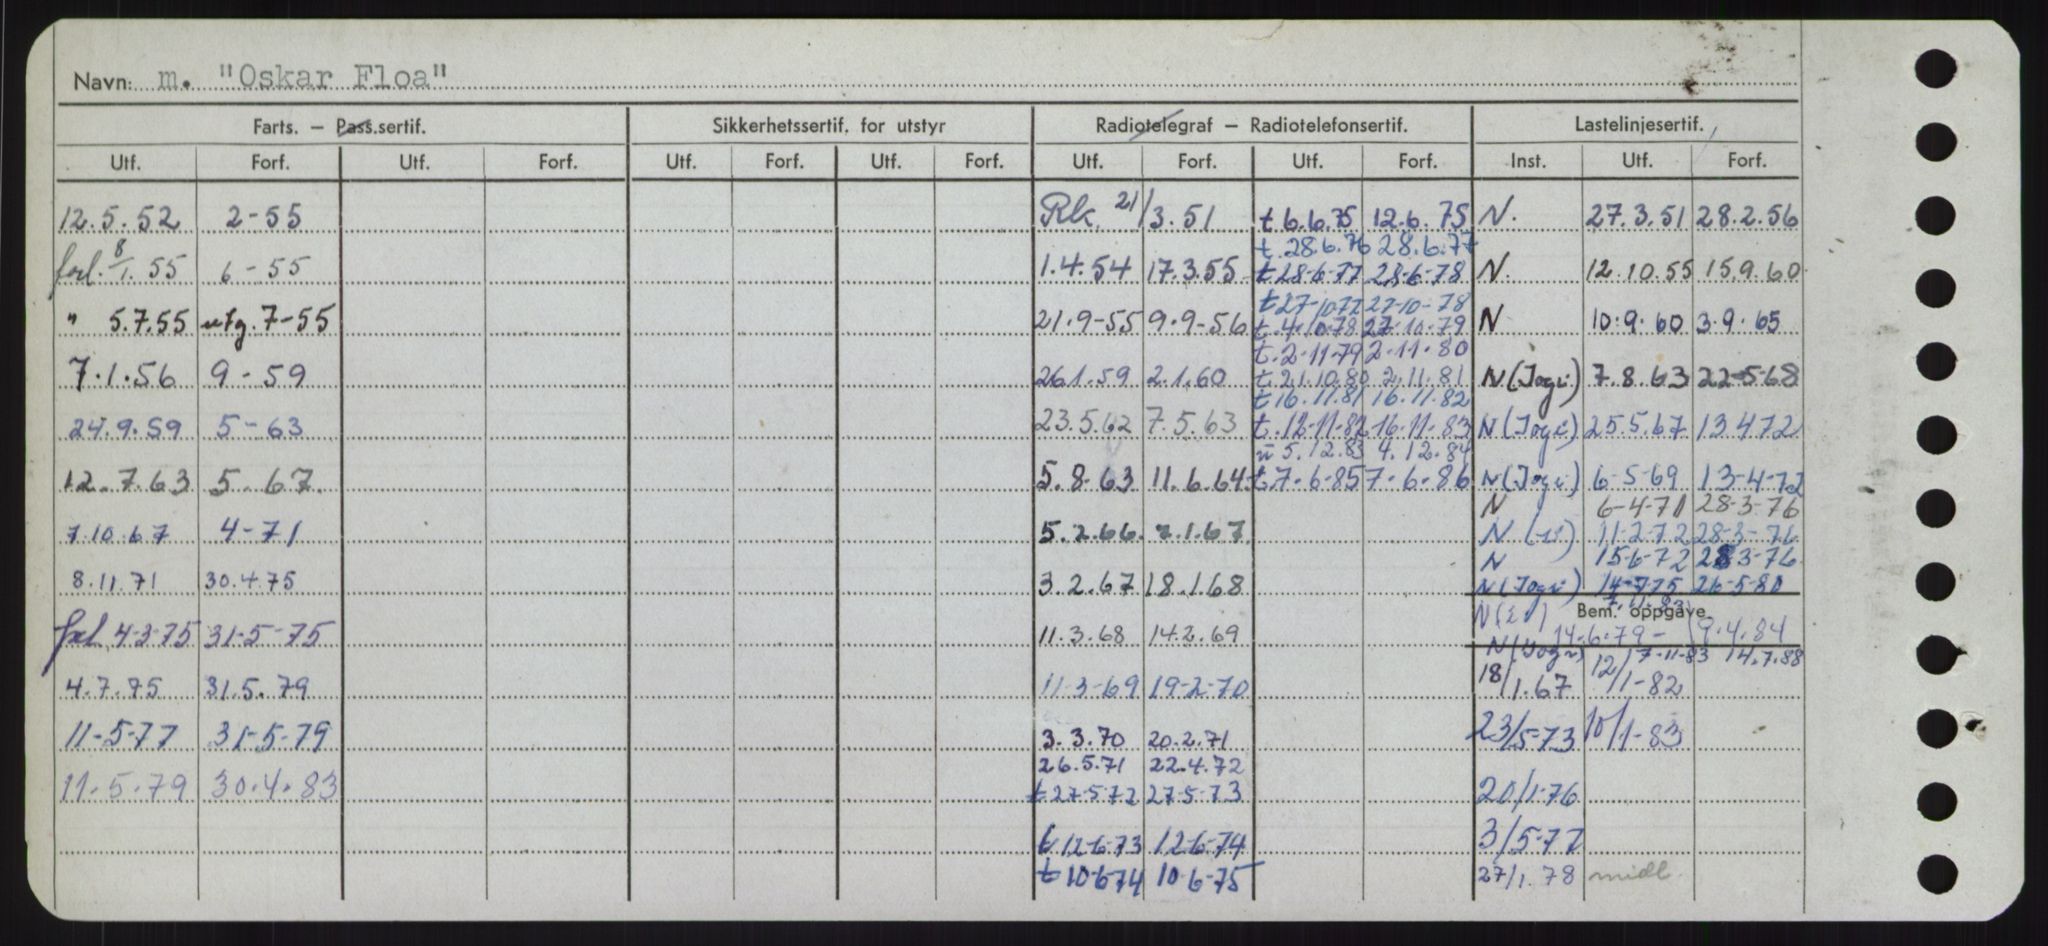 Navn: m. "Oskar Floa"
Farts. – Pass.sertif. Sikkerhetssertif. for utstyr Radiotelegraf – Radiotelefonsertif. Lastelinjesertif.
Utf. Forf. Utf. Forf. Utf. Forf. Utf. Forf. Utf. Forf. Utf. Forf. Inst. Utf. Forf.
12.5.52 2-55 Rk. 21/3.51 t 6.6.75 12.6.75 N. 27.3.51 28.2.56
t. 28.6.76 28.6.77
forl. 8/1.55 6-55 1.4.54 17.3.55 t 28-6-77 28-6-78 N. 12.10.55 15.9.60
t 27-10-77 27-10-78
" 5.7.55 utg. 7-55 21.9-55 9.9-56 t. 4.10.78 27.10.79 N 10.9.60 3.9.65
t. 2-11-79 2-11-80
7.1.56 9-59 26.1.59 2.1.60 t 21.10.80 2.11.81 N (Jogi) 7.8.63 22-5-68
t 16.11.81 16.11.82
24.9.59 5-63 23.5.62 7.5.63 t. 12-11-82 16-11-83 N (Jogi) 25.5.67 13.4.72
5.12.83 4.12.84
12.7.63 5.67 5.8-63 11.6.64 t. 7-6-85 7-6-86 N (Jogi) 6-5-69 13-4-72
N 6-4-71 28-3-76
7.10.67 4-71 5.2.66 7.1.67 N 11-2-72 28-3-76
N 15-6-72 28-3-76
8.11.71 30.4.75 3.2.67 18.1.68 N (Jogi) 14-7-75 26-5-80
N 7.11.83
Bem. oppgave
forl. 4-3-75 31-5-75 11.3.68 14.2.69 14.6.79- 9.4.84
N (Jogi) 7-11-83 14.7.88
4.7.75 31.5.79 11-3-69 19-2-70 18/1.67 12/1-82
11-5-77 31-5-79 3.3.70 20.2.71 23/5-73 10/1-83
26.5.71 22.4.72
11.5.79 30.4.83 t 27-5-72 27-5-73 20/1-76
t 12-6-73 12-6-74 3/5-77
t 10-6-74 10-6-75 27/1.78 midl.